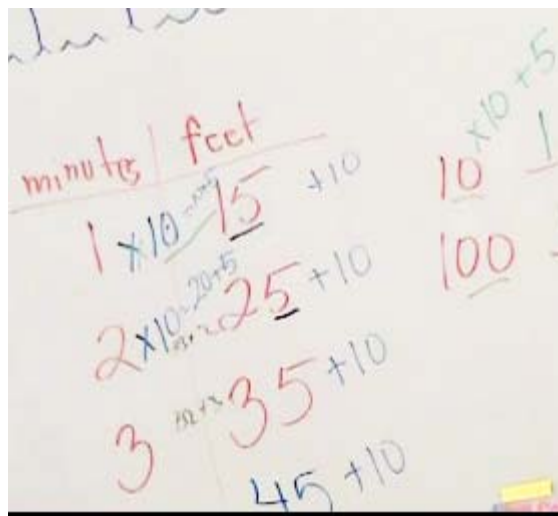 minutes | feet
1 ×10 15 +10
2 ×10=20+5 25 +10
3 35 +10
45 +10
×10 +5
10 1
100